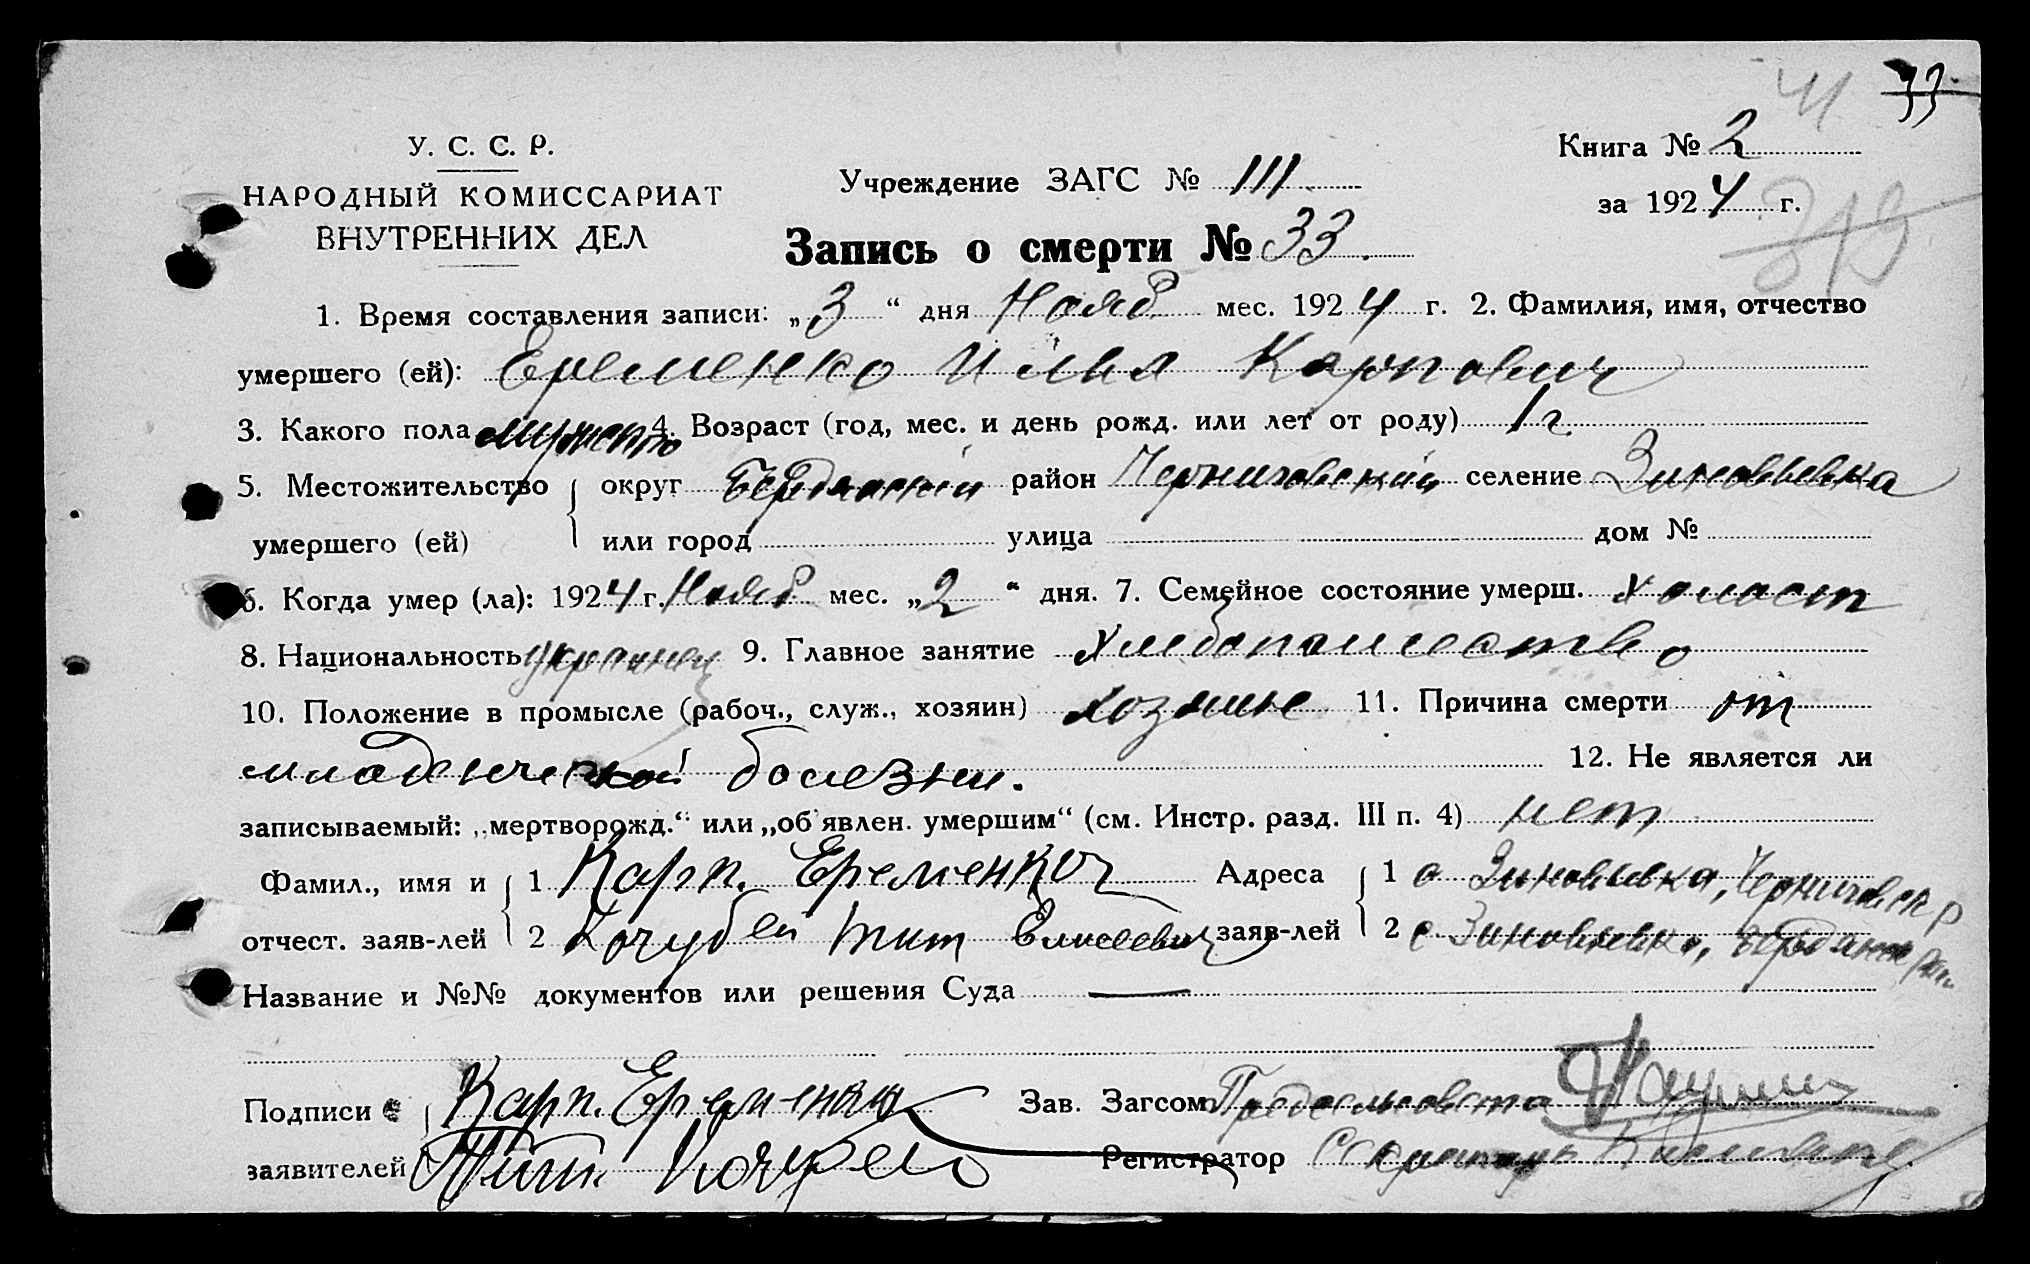 41 33
У. С. С. Р.
НАРОДНЫЙ КОМИССАРИАТ
ВНУТРЕННИХ ДЕЛ
Учреждение ЗАГС № 111
Книга № 2
за 1924 г.
319
Запись о смерти № 33.
1. Время составления записи: „3“ дня Нояб мес. 1924 г. 2. Фамилия, имя, отчество
умершего (ей): Еременко Илья Карпович
3. Какого пола 4. Возраст (год, мес. и день рожд. или лет от роду) 1 г
5. Местожительство округ Бердянский район Черниговский селение Зиновьевка
умершего (ей) или город улица дом №
6. Когда умер (ла): 1924 г. Нояб мес. „2“ дня. 7. Семейное состояние умерш. холост
8. Национальность украинец 9. Главное занятие Хлебопашество
10. Положение в промысле (рабоч., служ., хозяин) 11. Причина смерти от
младенческой болезни. 12. Не является ли
записываемый: „мертворожд.“ или „об'явлен. умершим“ (см. Инстр. разд. III п. 4) нет
Фамил., имя и 1 Карп. Еременко Адреса 1 с Зиновьевка, Черниговск р
отчест. заяв-лей 2 Кочубей Тит Елисеевич заяв-лей 2 с Зиновьевка,
Название и №№ документов или решения Суда —
Подписи Карп. Еременко Зав. Загсом Предсельсовета
заявителей Тит Кочубей Регистратор Секретарь